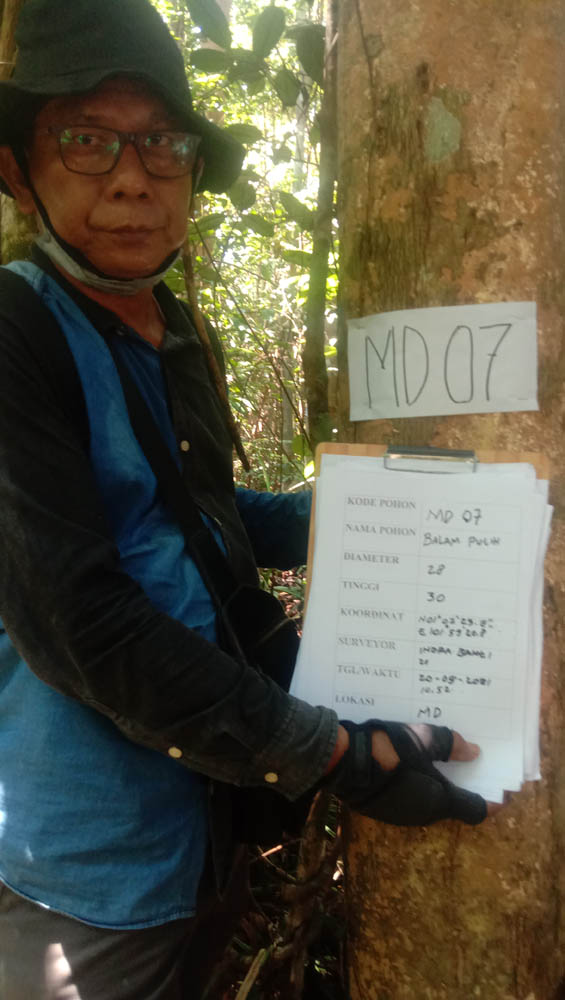 MD 07
KODE POHON MD 07
NAMA POHON BALAM PUTIH
DIAMETER 28
TINGGI 30
KOORDINAT N01°02'
SURVEYOR INDRA
TGL/WAKTU 20-09-2021
10.52
LOKASI MD